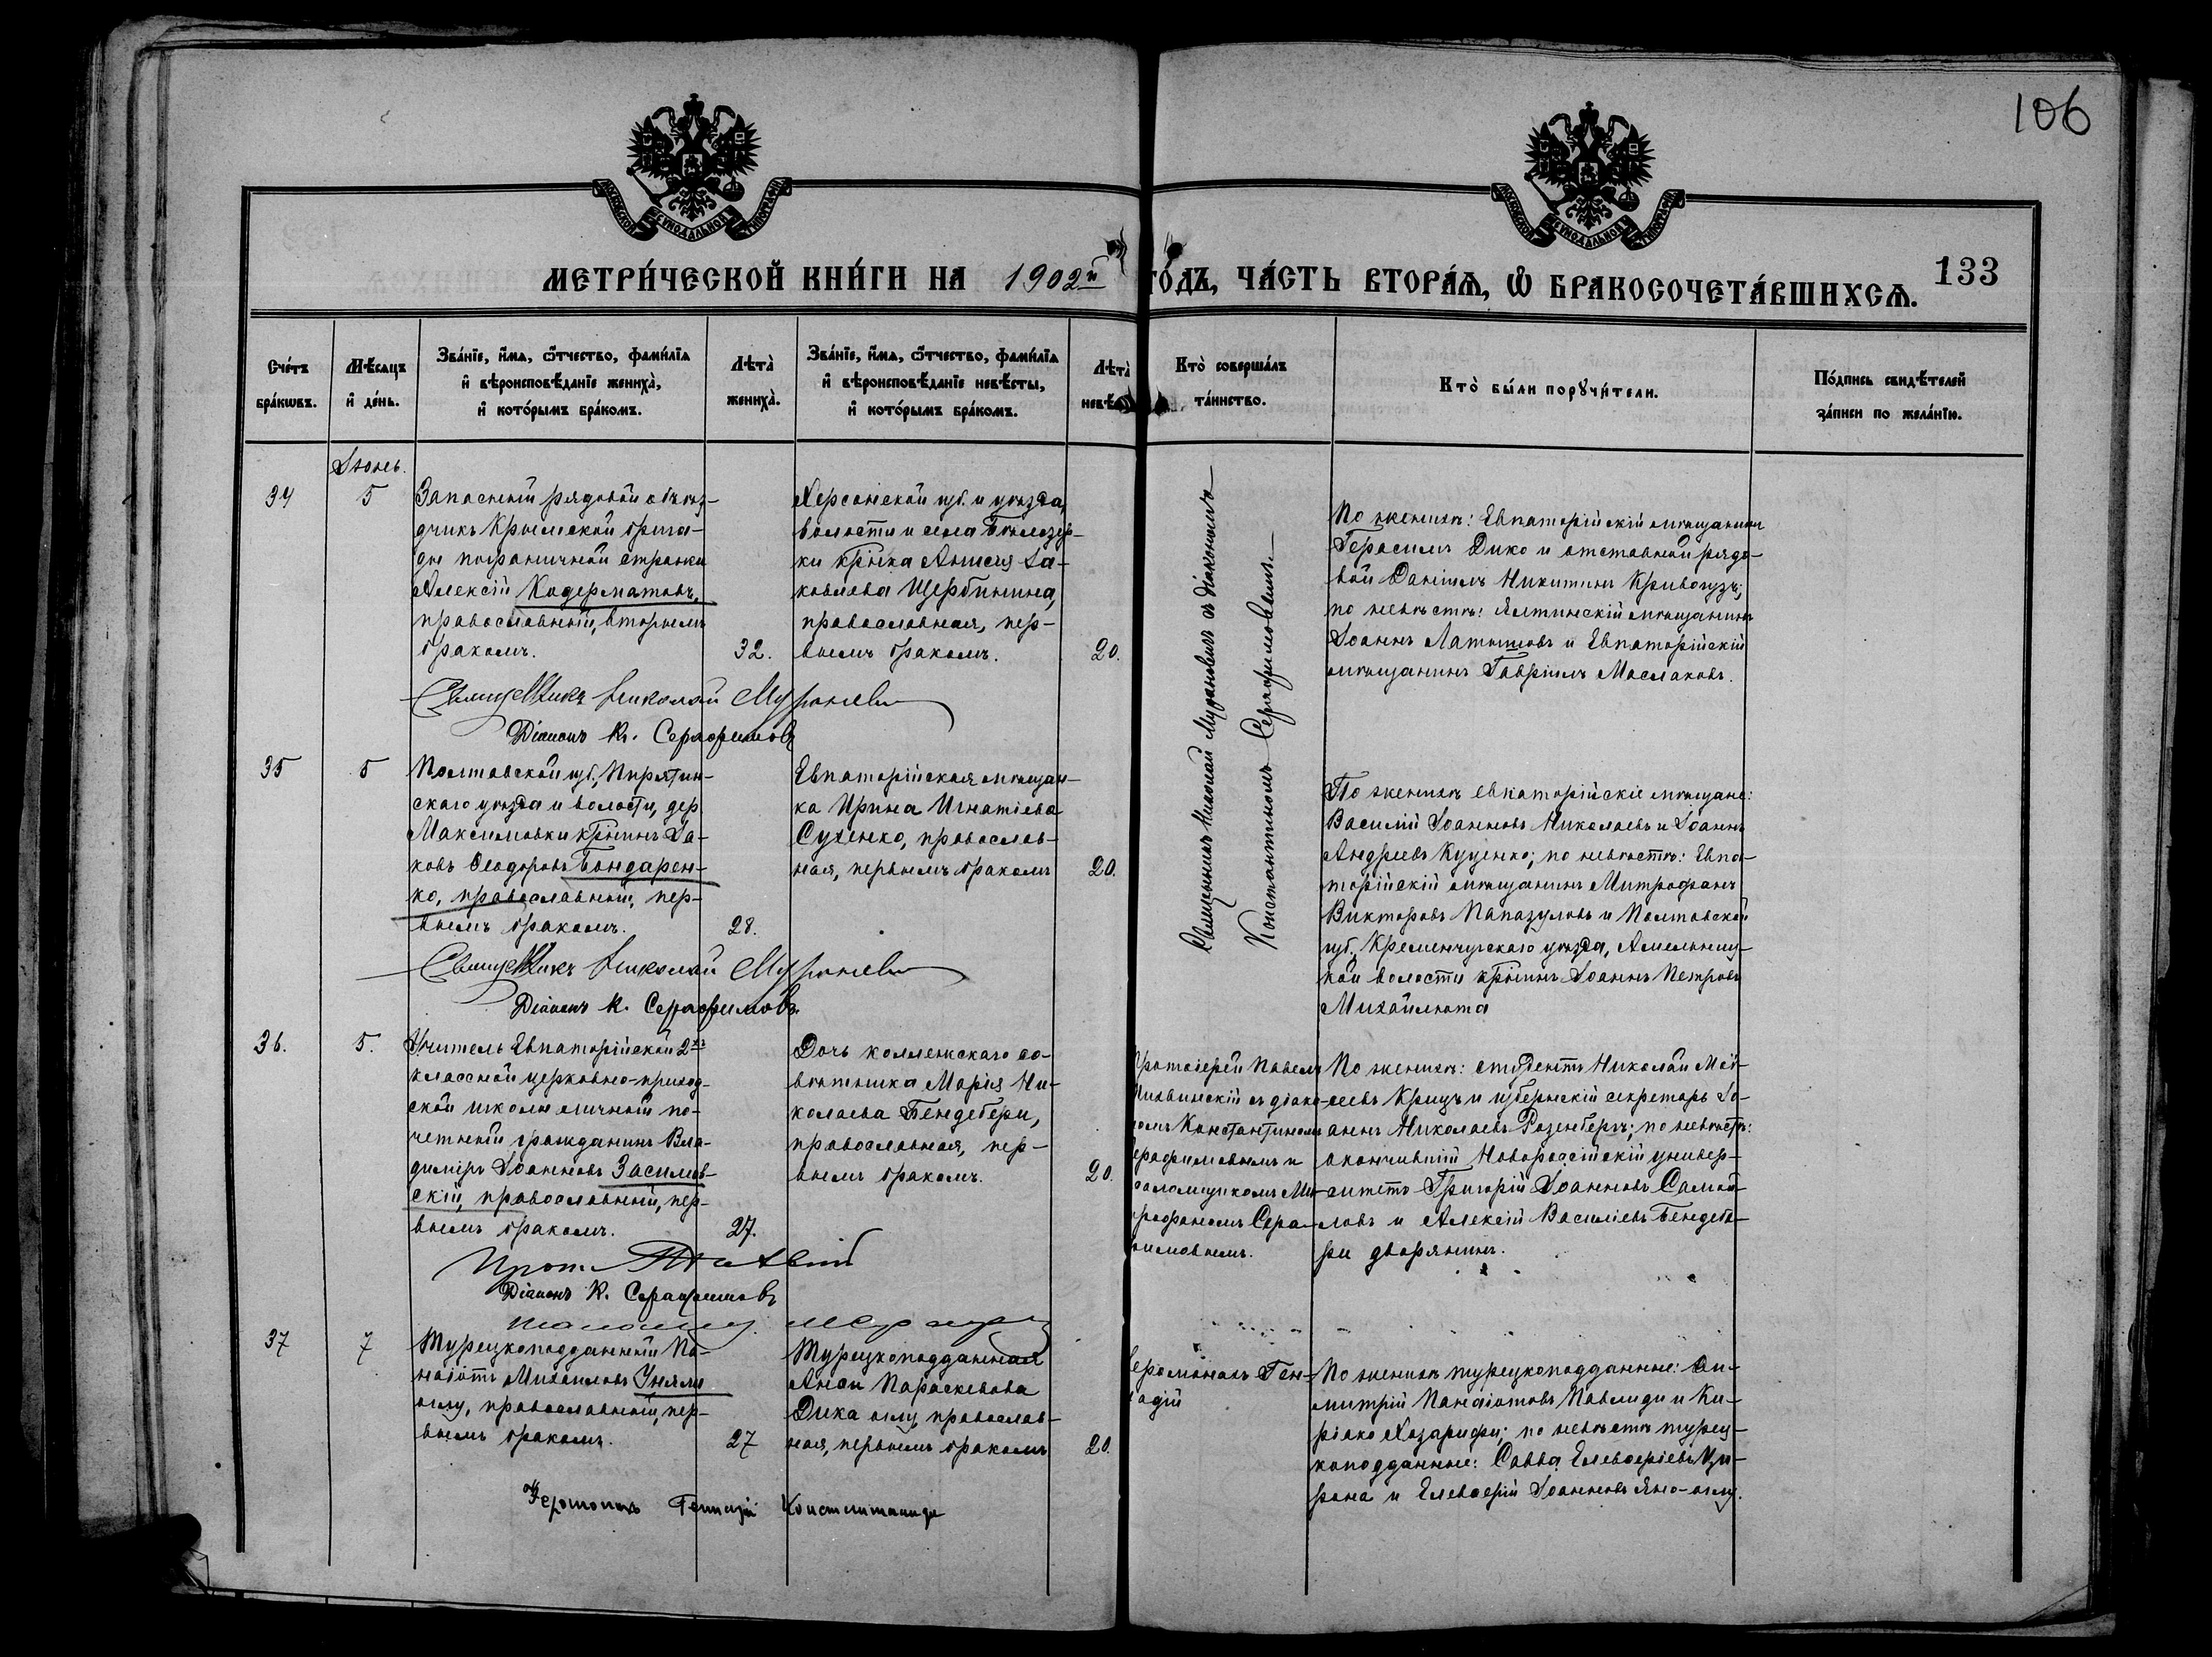 106
МОСКОВСКОЙ СѴНОДАЛЬНОЙ ТИПОГРАФІИ
МОСКОВСКОЙ СѴНОДАЛЬНОЙ ТИПОГРАФІИ
МЕТРИ́ЧЕСКОЙ КНИ́ГИ НА 1902й ГО́ДЪ, ЧА́СТЬ ВТОРА́Ѧ, Ѡ҆ БРАКОСОЧЕТА́ВШИХСѦ. 133
Сче́тъ бра́кѡвъ.
Мѣ́сяцъ и҆ де́нь.
Зва́нїе, и҆́мѧ, ѻ҆́тчество, фами́лїѧ и҆ вѣроисповѣ́данїе жениха̀, и҆ кото́рымъ бра́комъ.
Лѣта̀ жениха̀.
Зва́нїе, и҆́мѧ, ѻ҆́тчество, фами́лїѧ и҆ вѣроисповѣ́данїе невѣ́сты, и҆ кото́рымъ бра́комъ.
Лѣта̀ невѣ
Кто̀ соверша́лъ та́инство.
Кто̀ бы́ли порꙋчи́тели.
По́дпись свидѣ́телей за́писи по жела́нїю.
Іюнь.
34
5
Запасный рядовой объѣз-
дчикъ Крымской брига-
ды пограничной стражи
Алексій Кодерматовъ,
православный, вторымъ
бракомъ.
32.
Херсонской губ. и уѣзда,
волости и села Бѣлозер-
ки кр̄нка Анисія Іа-
ковлева Щербинина,
православная, пер-
вымъ бракомъ.
20.
Священникъ Николай Мурановичъ съ діакономъ
Константиномъ Серафимовымъ.
По женихѣ: Евпаторійскій мѣщанинъ
Герасимъ Дико и отставной рядо-
вой Даніилъ Никитинъ Кривогузъ;
по невѣстѣ: Ялтинскій мѣщанинъ
Іоаннъ Латышовъ и Евпаторійскій
мѣщанинъ Гавріилъ Маслаковъ.
Священникъ Николай
Діаконъ К. Серафимовъ
35
5
Полтавской губ., Пирятин-
скаго уѣзда и волости, дер.
Максимовки кр̄нинъ Іа-
ковъ Ѳеодоровъ Бондарен-
ко, православный, пер-
вымъ бракомъ.
28.
Евпаторійская мѣщан-
ка Ирина Игнатіева
Сухенко, православ-
ная, первымъ бракомъ
20.
По женихѣ евпаторійскіе мѣщане:
Василій Іоанновъ Николаевъ и Іоаннъ
Андреевъ Куценко; по невѣстѣ: Евпа-
торійскій мѣщанинъ Митрофанъ
Викторовъ Папазуловъ и Полтавской
губ. Кременчугскаго уѣзда, Амельниц-
кой волости кр̄нинъ Іоаннъ Петровъ
Михайлюта
Священникъ Николай
Діаконъ К. Серафимовъ.
36.
5.
Учитель Евпаторійской 2хъ
классной церковно-приход-
ской школы личный по-
четный гражданинъ Вла-
димиръ Іоанновъ Засимов-
скій, православный, пер-
вымъ бракомъ.
27.
Дочь коллежскаго со-
вѣтника Марія Ни-
колаева Бендебери,
православная, пер-
вымъ бракомъ.
20.
ротоіерей Павелъ
съ діако-
омъ Константиномъ
ерафимовымъ и
саломщикомъ Ми-
рофаномъ Сера-
имовымъ.
По женихѣ: студентъ Николай Мои-
сеевъ Крицъ и губернскій секретарь Іо-
аннъ Николаевъ Розенбергъ; по невѣстѣ:
окончившій Новороссійскій универ-
ситетъ Григорій Іоанновъ Самой-
ловъ и Алексій Василіевъ Бендебе-
ри дворянинъ.
Діаконъ К. Серафимовъ
37
7
Турецкоподданный Па-
наіотъ Михаиловъ Уняли
оглу, православный, пер-
вымъ бракомъ.
27
Турецкоподданная
Анои Параскевова
Дика оглу православ-
ная, первымъ бракомъ
20.
еромонахъ Ген-
адій
По женихѣ турецкоподданные: Ди-
митрій Панаіотовъ Павлиди и Ки-
ріако Хазарифи; по невѣстѣ турец-
коподданные: Савва Елевферіевъ
и Елевферій Іоанновъ Яно-оглу.
Іеромонахъ Геннадій Константиниди